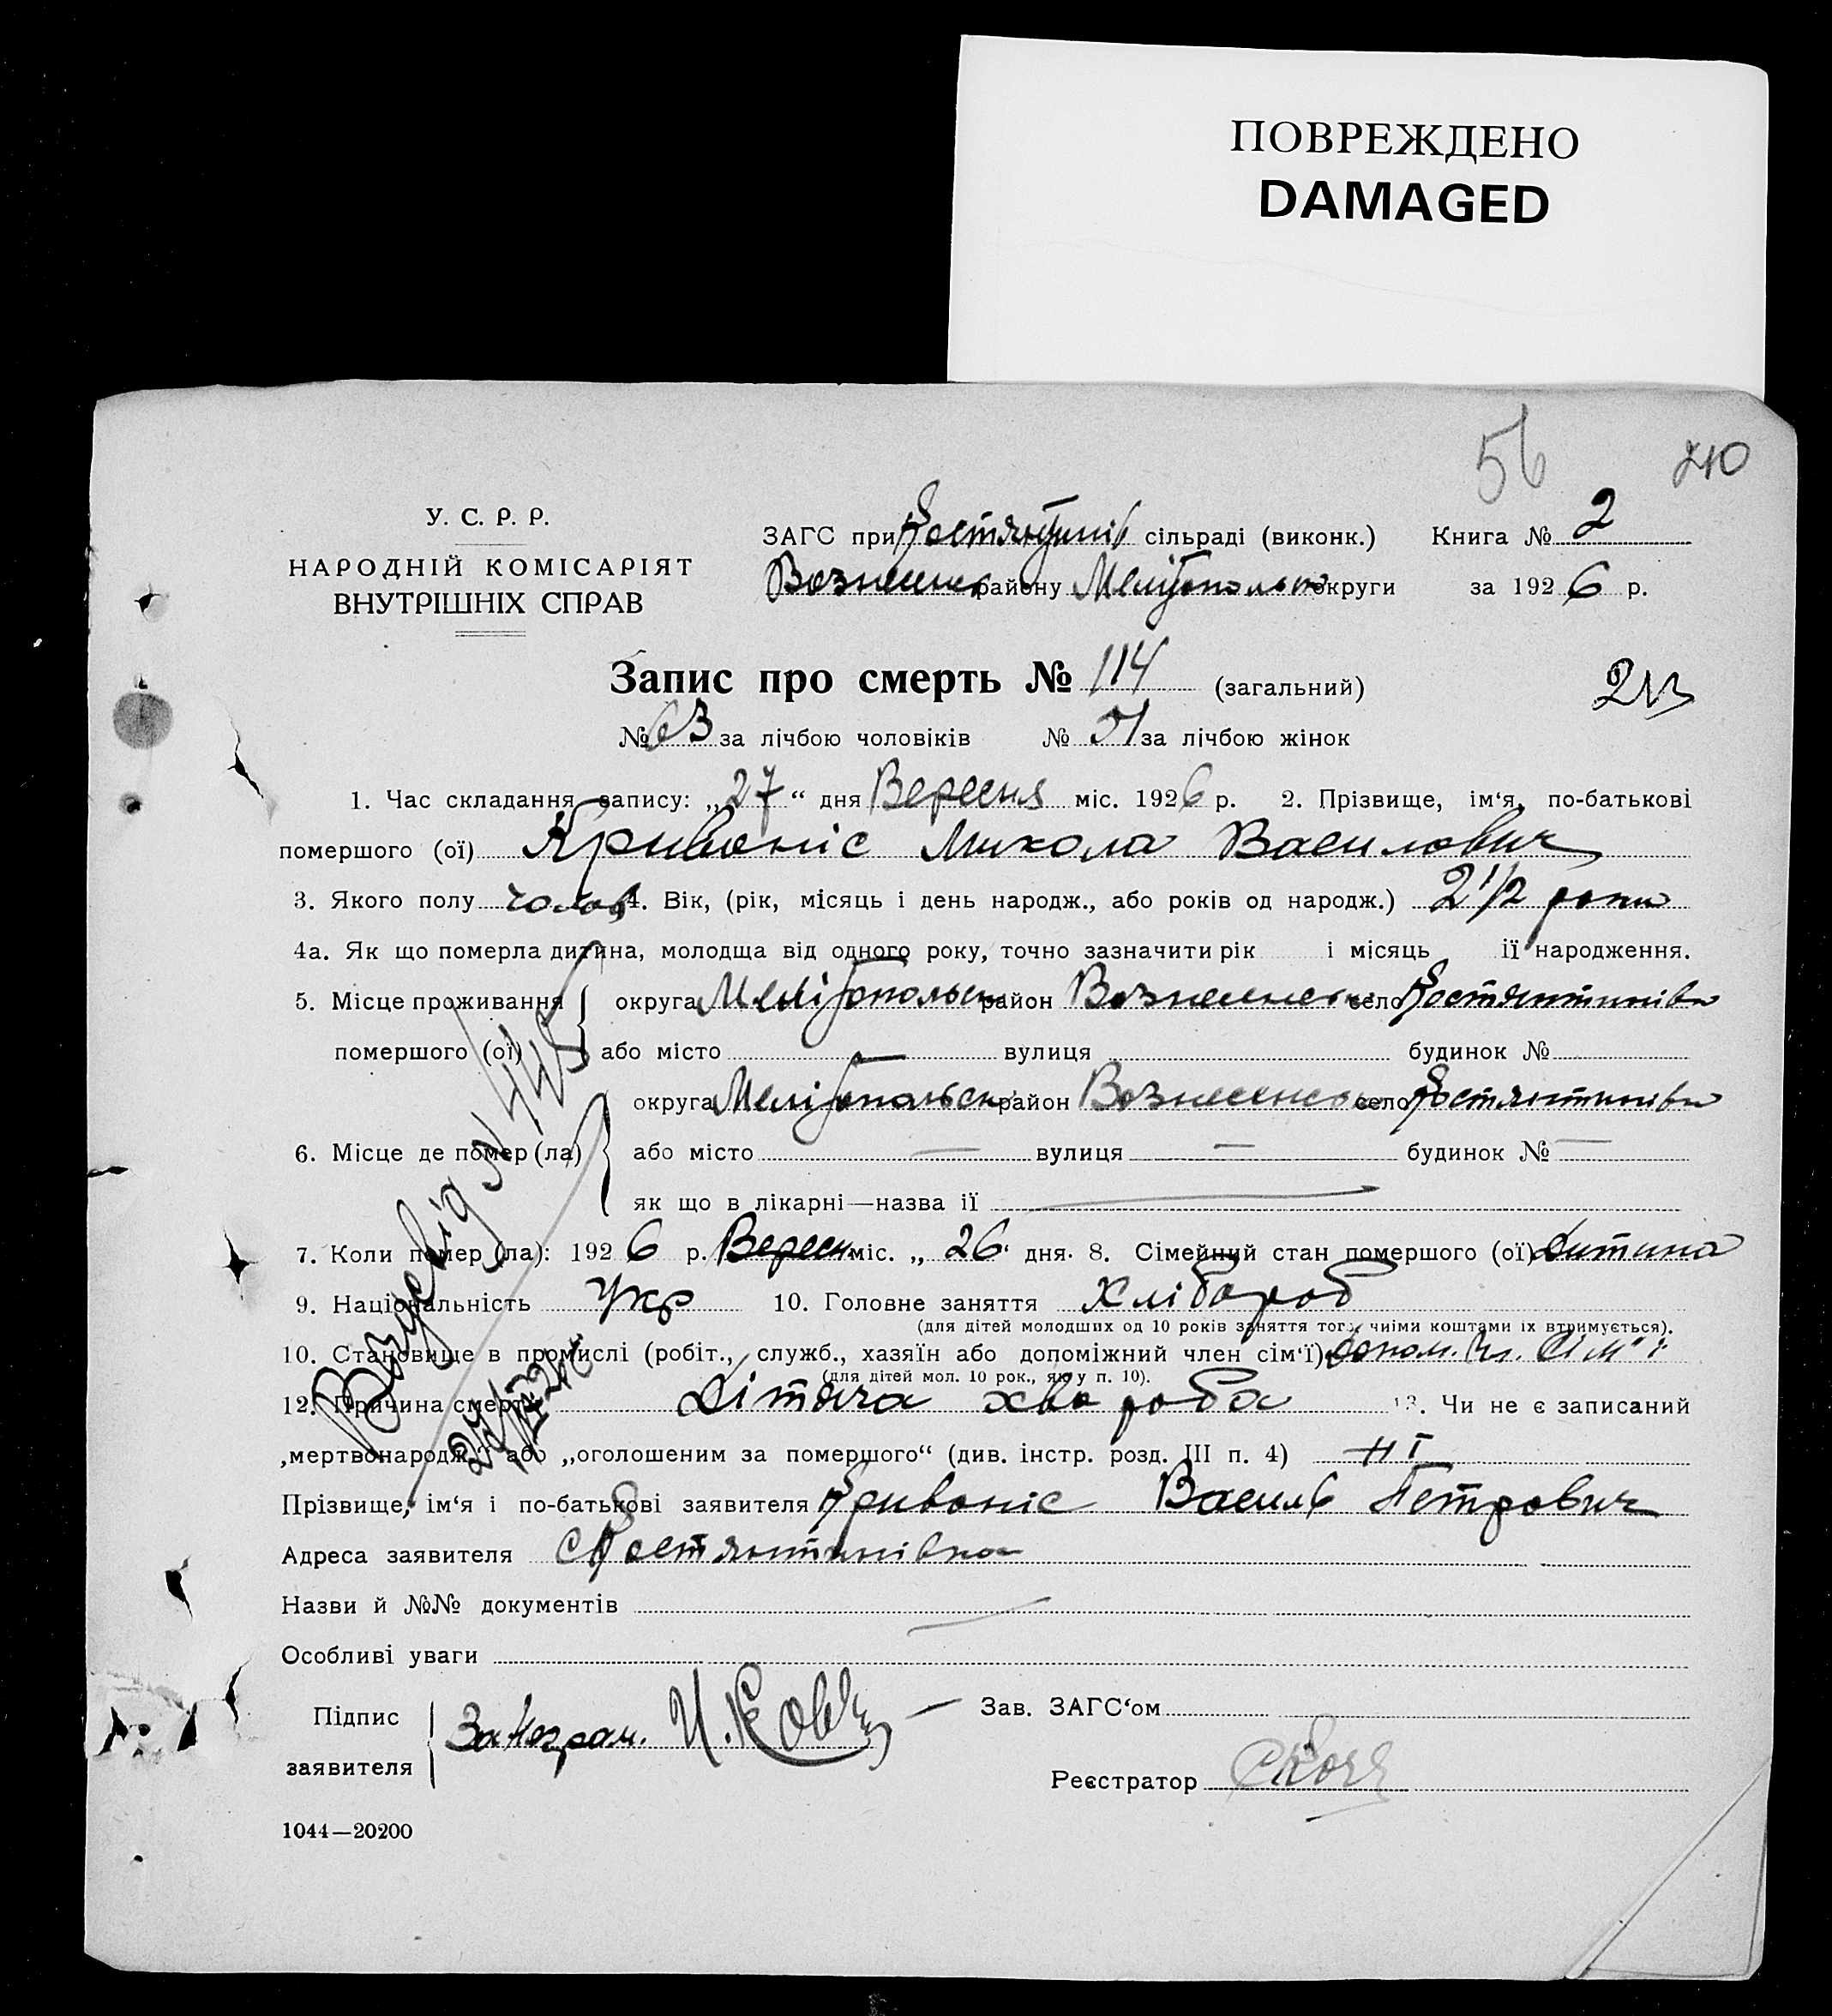 ПОВРЕЖДЕНО
DAMAGED
56 210
У. С. Р. Р.
НАРОДНІЙ КОМІСАРІЯТ
ВНУТРІШНІХ СПРАВ
ЗАГС при Костянтинів сільраді (виконк.) Книга № 2
Вознесенс району Мелітопольск округи за 1926 р.
Запис про смерть № 114 (загальний)
213
№ 63 за лічбою чоловіків № 51 за лічбою жінок
1. Час складання запису: „27“ дня Вересня міс. 1926 р. 2. Прізвище, ім‘я, по-батькові
помершого (ої) Кривоніс Микола Василович
3. Якого полу чолов 4. Вік, (рік, місяць і день народж., або років од народж.) 2 1/2 роки
4а. Як що померла дитина, молодща від одного року, точно зазначити рік і місяць ії народження.
5. Місце проживання округа Мелітопольськ район Вознесенськ село Костянтинівка
помершого (ої) або місто — вулиця будинок №
округа Мелітопольськ район Вознесенськ село Костянтинівка
6. Місце де помер (ла) або місто — вулиця — будинок № —
як що в лікарні—назва ії
7. Коли помер (ла): 1926 р. Вересн міс. „26“ дня. 8. Сімейний стан помершого (ої) Дитина
9. Національність Укр 10. Головне заняття Хлібороб
(для дітей молодших од 10 років заняття того, чиїми коштами їх втримується).
10. Становище в промислі (робіт., служб., хазяїн або допоміжний член сім‘ї) допом. чл. сім'ї
(для дітей мол. 10 рок., як у п. 10).
12. Причина смерти Дітяча хвороба 13. Чи не є записаний
„мертвонародж.“ або „оголошеним за помершого“ (див. інстр. розд. III п. 4) ні
Прізвище, ім‘я і по-батькові заявителя Кривоніс Василь Петрович
Адреса заявителя с Костянтинівка
Назви й №№ документів
Особливі уваги
Підпис
заявителя
За неграм.
Зав. ЗАГС‘ом
Реєстратор
1044—20200